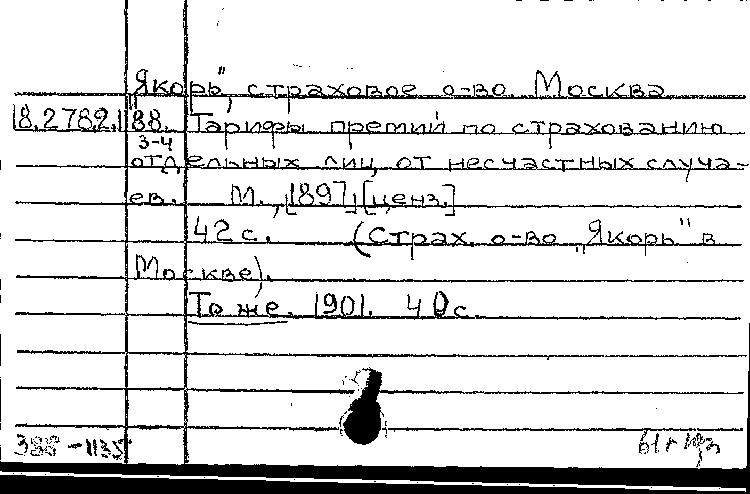 „Якорь", страховое о-во. Москва
18.278.2.188. Тарифы премий по страхованию
3-4
отдельных лиц от несчастных случа-
ев. М., [1897] [ценз.]
42 с. (Страх. о-во „Якорь" в
Москве).
То же. 1901. 40 с.
388-1135
61г